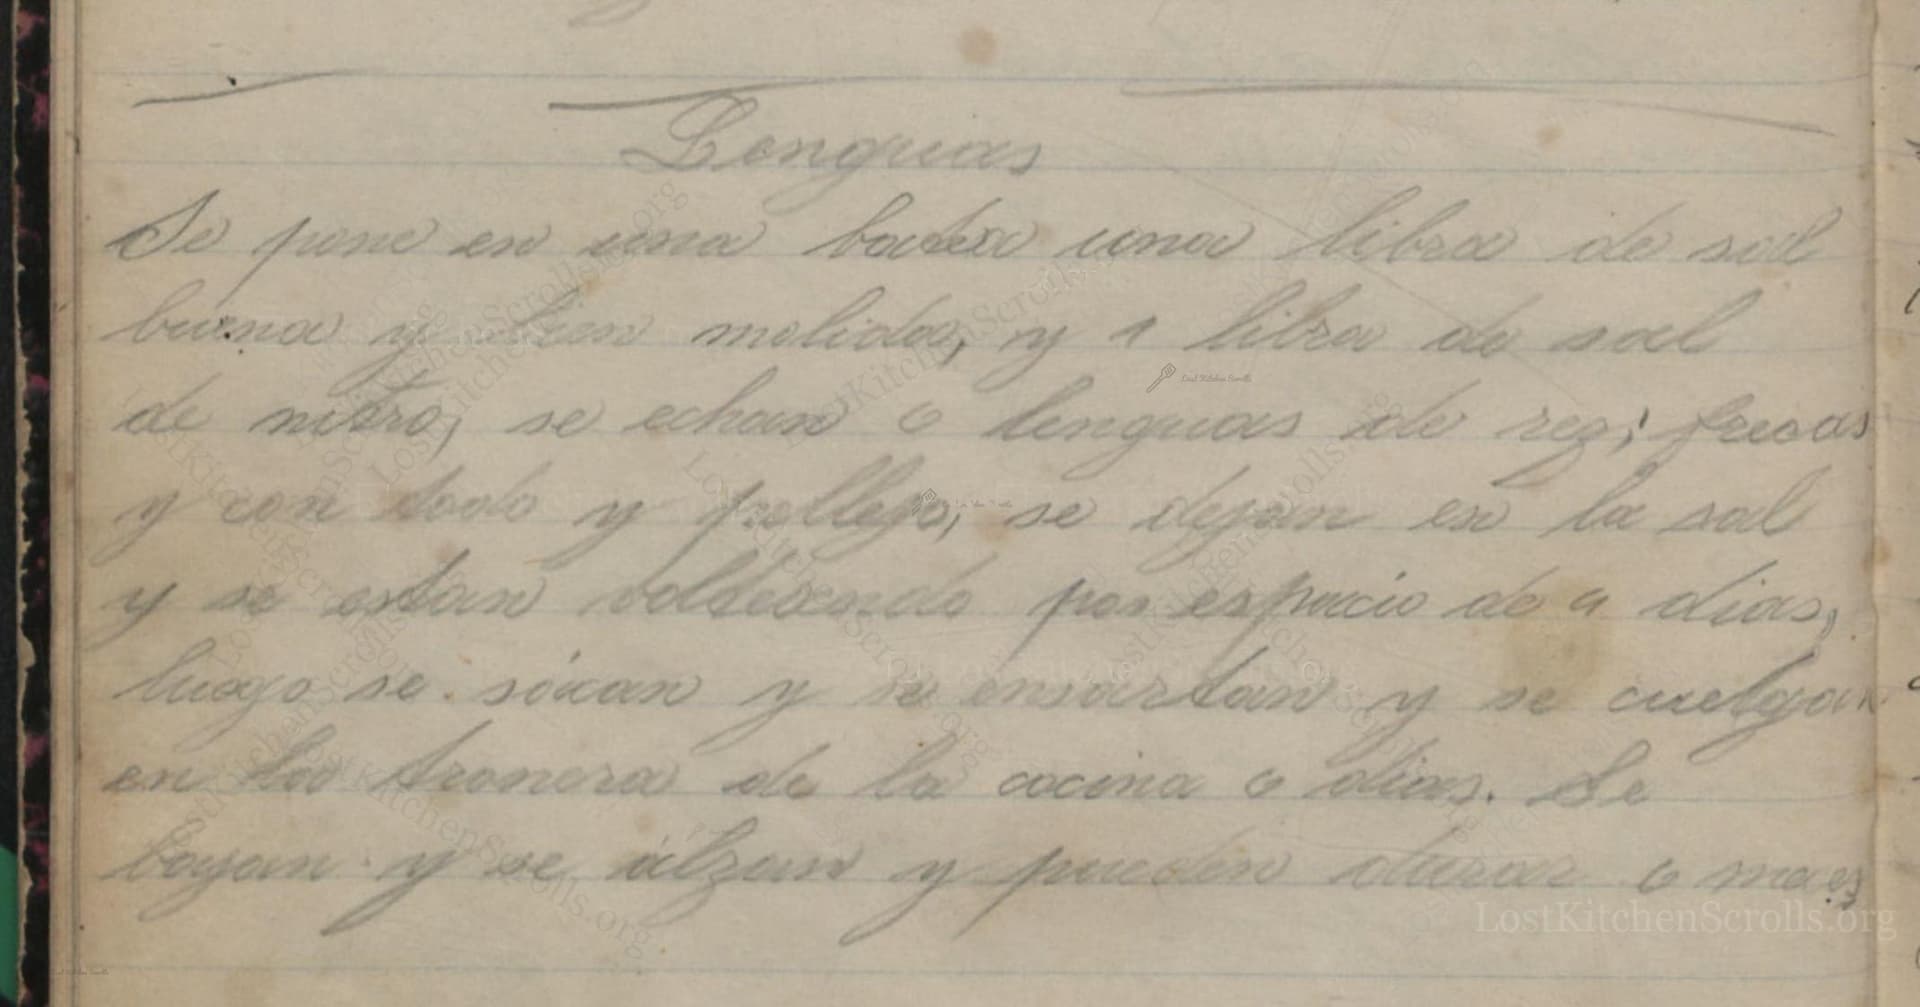 Lenguas
Se pone en una batea una libra de sal
buena y bien molida, y 1 libra de sal
de nitro, se echan 6 lenguas de rez; frecas
y con todo y pellejo, se dejan en la sal
y se estan volteando por espacio de 4 dias,
luego se sácan y se ensartan y se cuelgan
en la tronera de la cocina 6 dias. Se
bajan y se alzan y pueden durar 6 meses
LostKitchenScrolls.org